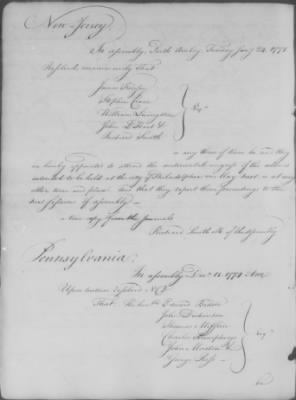 New Jersey
In Assembly, Perth Amboy Tuesday Jany 24, 1775
Resolved unanimously That
James Kinsey
Stephen Crane
William Livingston
John D Hart &
Richard Smith
Esqrs
or any three of them be and they
are hereby appointed to attend the continental congress of the colonies
intended to be held at the city of Philadelphia in May next or at any
other time and place. And that they report their proceedings to the
next session of Assembly —
A true copy from the Journals
Richard Smith Clk of the Assembly
Pennsylvania:
In Assembly Decr 15 1774
Upon motion Resolved N.C.D.
That the honble Edward Biddle
John Dickinson
Thomas Mifflin
Charles Humphreys
John Morton &
George Ross
Esqrs